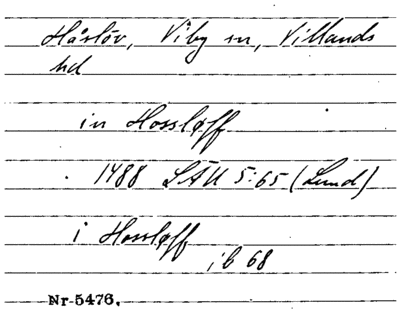 Håslöv, Viby sn, Villands
hd
in Hossløff
1488 LÄU 5:65 (Lund)
i Hossløff
ib 68
Nr 5476.